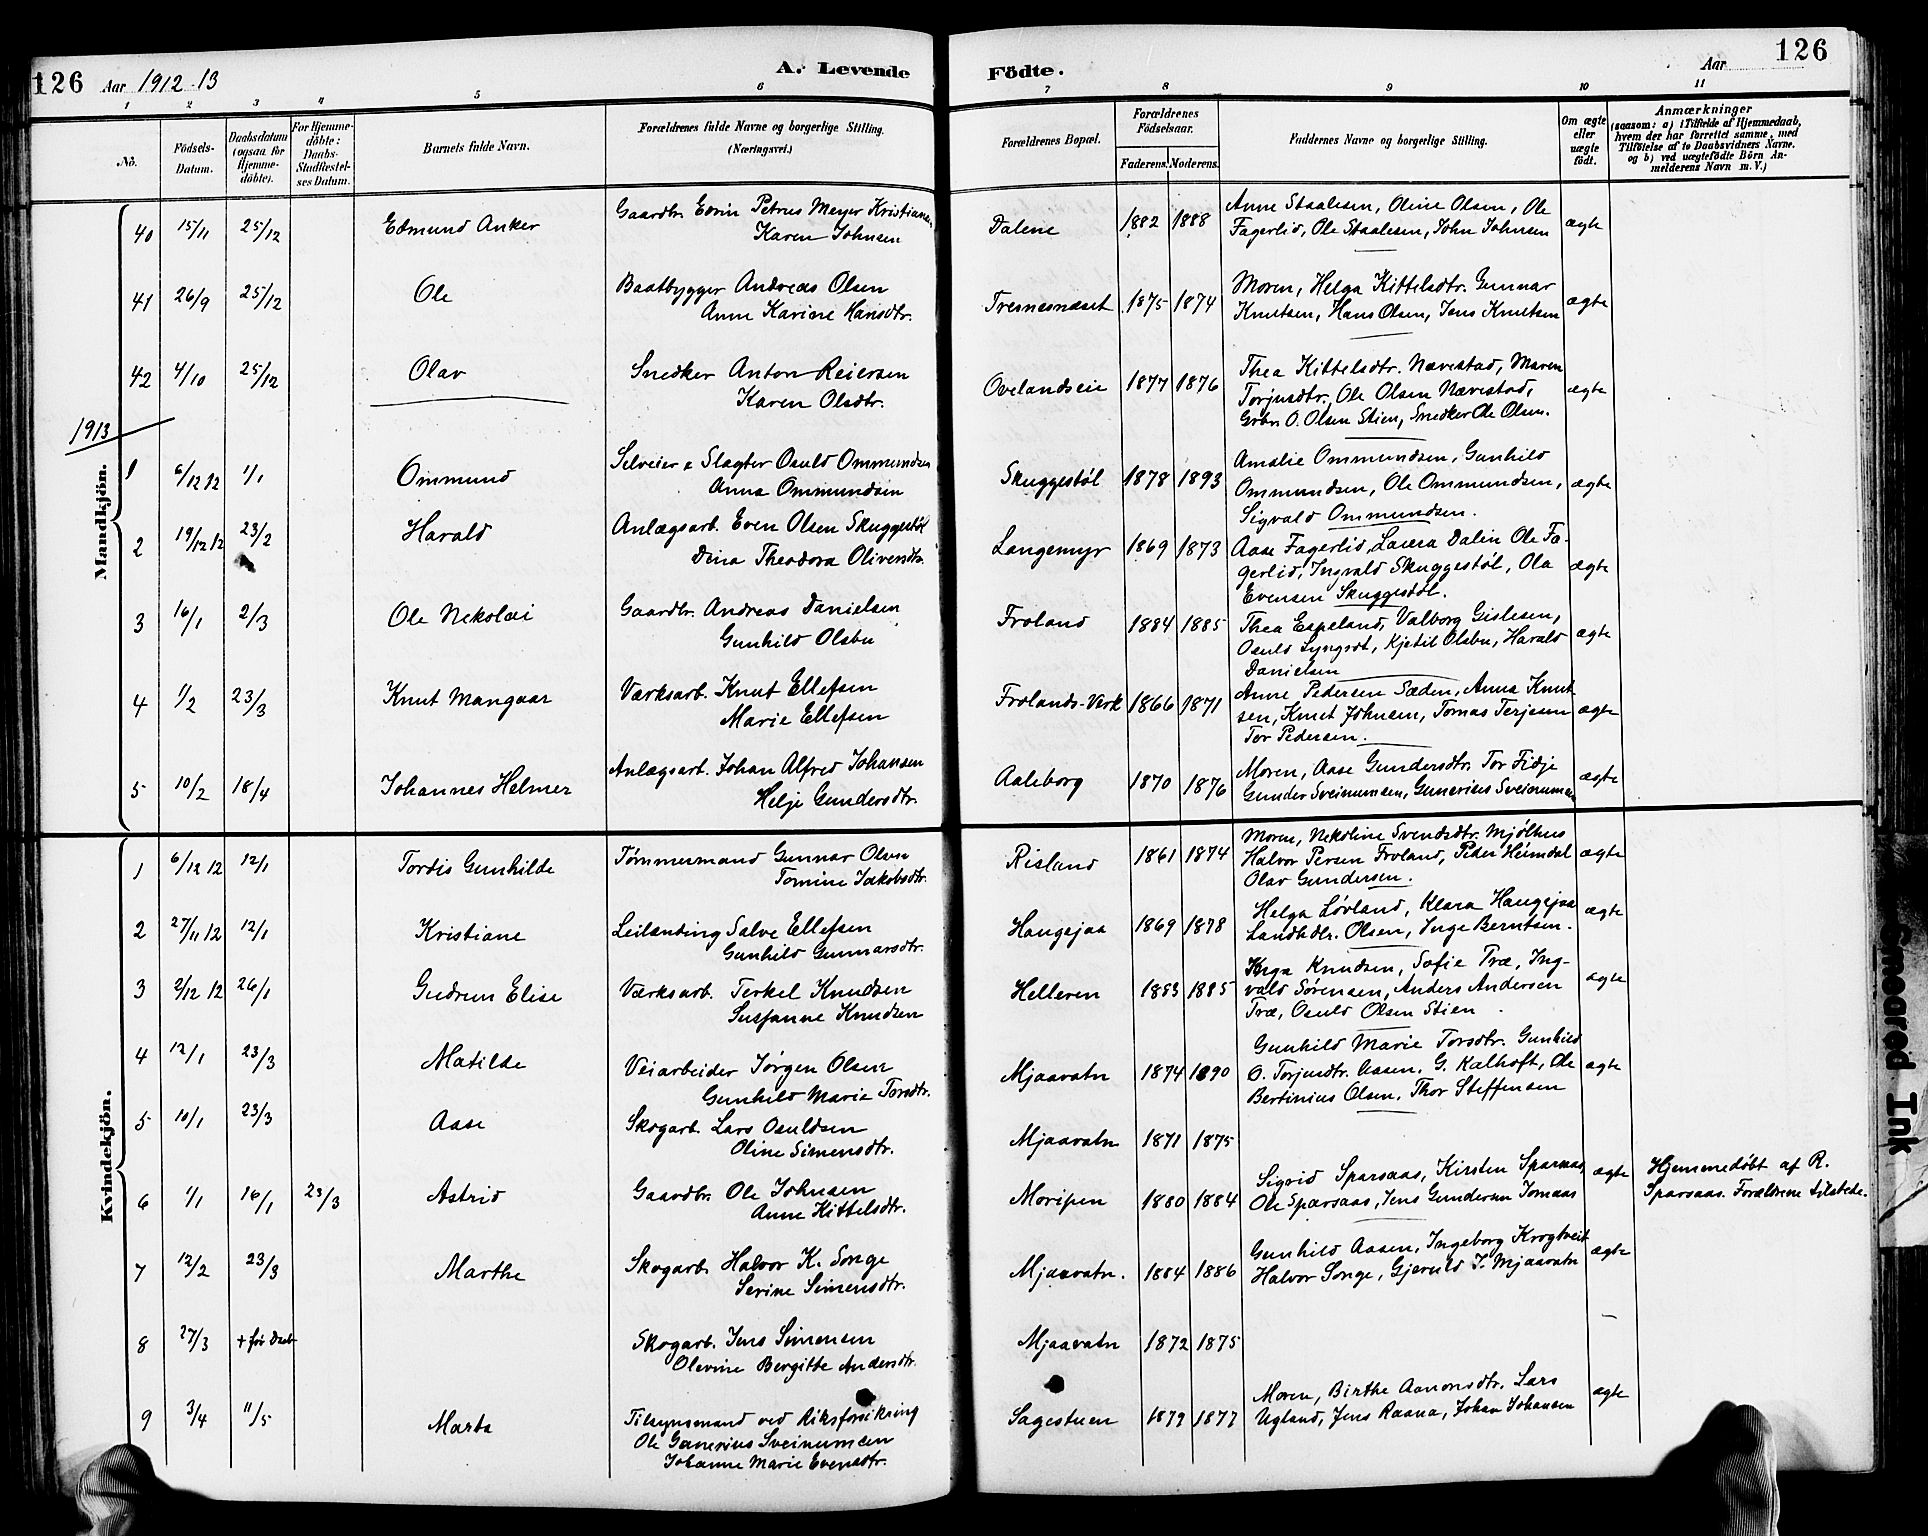 126 Aar 1912-13 A. Levende
Födte. Aar 126
1 2 3 4 5 6 7 8 9 10 11
No.
Födsels-Datum.
Daabsdatum (ogsaa for Hjemme-döbte).
For Hjemme-döbte: Daabs-Stadfæstel-ses Datum.
Barnets fulde Navn.
Forældrenes fulde Navne og borgerlige Stilling.
(Næringsvei.)
Forældrenes Bopæl.
Forældrenes Födselsaar.
Faderens. Moderens.
Faddernes Navne og borgerlige Stilling.
Om ægte eller uægte födt.
Anmærkninger
(saasom: a) i Tilfælde af Hjemmedaab,
hvem der har forrettet samme, med
Tilföielse af to Daabsvidners Navne.
og b) ved uægtefödte Börn An-
melderens Navn m. V.)
Mandkjön.
40 15/11 25/12 Edmund Anker Gaardbr. Edvin Petrus Meyer Kristiansen
Karen Johnsen
Dalene 1882 1888 Anne Staalesen, Oline Olsen, Ole
Fagerlid, Ole Staalesen, John Johnsen ægte
41 26/9 25/12 Ole Baatbygger Andreas Olsen
Anne Karine Hansdtr.
Tresnesnæset 1875 1874 Moren, Helga Kittelsdtr. Gunnar
Knutsen, Hans Olsen, Jens Knutsen ægte
42 4/10 25/12 Olav Snedker Anton Reiersen
Karen Olsdtr.
Ovelandseie 1877 1876 Thea Kittelsdtr. Nævestad, Maren
Torjusdtr., Ole Olsen Nævestad,
Grbr. O. Olsen Stien, Snedker Ole Olsen. ægte
1913
1 6/12 12 1/1 Ommund Selveier & Slagter Osuld Ommundsen
Anna Ommundsen
Skuggestøl 1878 1893 Amalie Ommundsen, Gunhild
Ommundsen, Ole Ommundsen,
Sigvald Ommundsen. ægte
2 19/12 12 23/2 Harald Anlægsarb. Even Olsen Skuggestøl
Dina Theodora Olivendtr.
Langemyr 1869 1873 Aase Fagerlid, Laura Dalen Ole Fa-
gerlid, Ingvald Skuggestøl, Ola
Evensen Skuggestøl. ægte
3 16/1 2/3 Ole Nekolai Gaardbr. Andreas Danielsen
Gunhild Olsbu
Froland 1884 1885 Thea Espeland, Valborg Gislesen,
Osuld Lyngrot, Kjetil Olsbu, Harald
Danielsen ægte
4 1/2 23/3 Knut Mangaar Værksarb. Knut Ellefsen
Marie Ellefsen
Frolands-Verk 1866 1871 Anne Pedersen Sæden, Anna Knut
sen, Knut Johnsen, Tomas Terjesen
Tor Pedersen. ægte
5 10/2 18/4 Johannes Helmer Anlægsarb. Johan Alfred Johansen
Helje Gundersdtr.
Aaleborg 1870 1876 Moren, Aase Gundersdtr. Tor Fidje
Gunder Sveinumsen, Gunerius Sveinumsen ægte
Kvindekjön.
1 6/12 12 12/1 Tordis Gunhilde Tømmermand Gunnar Olsen
Tomine Jakobsdtr.
Risland 1861 1874 Moren, Nekoline Svendsdtr. Mjølhus
Halvor Persen Froland, Peder Heimdal
Olav Gundersen. ægte
2 27/11 12 12/1 Kristiane Leilænding Salve Ellefsen
Gunhild Gunnarsdtr.
Haugejaa 1869 1878 Helga Løvland, Klara Haugejaa
Landhdlr. Olsen, Inge Berntsen. ægte
3 2/12 12 26/1 Gudrun Elise Værksarb. Terkel Knudsen
Susanne Knudsen
Helleren 1883 1885 Inga Knudsen, Sofie Træ, Ing-
vald Sørensen, Anders Andersen
Træ, Osuld Olsen Stien ægte
4 12/1 23/3 Matilde Veiarbeider Jørgen Olsen
Gunhild Marie Torsdtr.
Mjaavatn 1874 1890 Gunhild Marie Torsdtr. Gunhild
O. Torjusdtr. Aasen, G. Kalhoft, Ole
Bertinius Olsen, Thor Steffensen ægte
5 10/1 23/3 Aase Skogarb. Lars Osuldsen
Oline Simensdtr.
Mjaavatn 1871 1875
6 1/1 16/1 23/3 Astrid Gaardbr. Ole Johnsen
Anne Kittelsdtr.
Moripen 1880 1884 Sigrid Sparsaas, Kirsten Sparsaas,
Ole Sparsaas, Jens Gundersen Tomaas ægte Hjemmedøbt af R.
Sparsaas. Forældrene tilstede.
7 12/2 23/3 Marthe Skogarb. Halvor K. Songe
Serine Simensdtr.
Mjaavatn. 1884 1886 Gunhild Aasen, Ingeborg Krogtveit
Halvor Songe, Gjeruld J. Mjaavatn ægte
8 27/3 + før Daab Skogarb. Jens Simensen
Olevine Bergitte Andersdtr.
Mjaavatn 1872 1875 —
9 3/4 11/5 Marta Tilsynsmand ved Riksforsikring
Ole Gunerius Sveinumsen
Johanne Marie Evensdtr.
Sagestuen 1879 1877 Moren, Birthe Aanonsdtr. Lars
Ugland, Jens Raana, Johan Johansen ægte
Smeared Ink